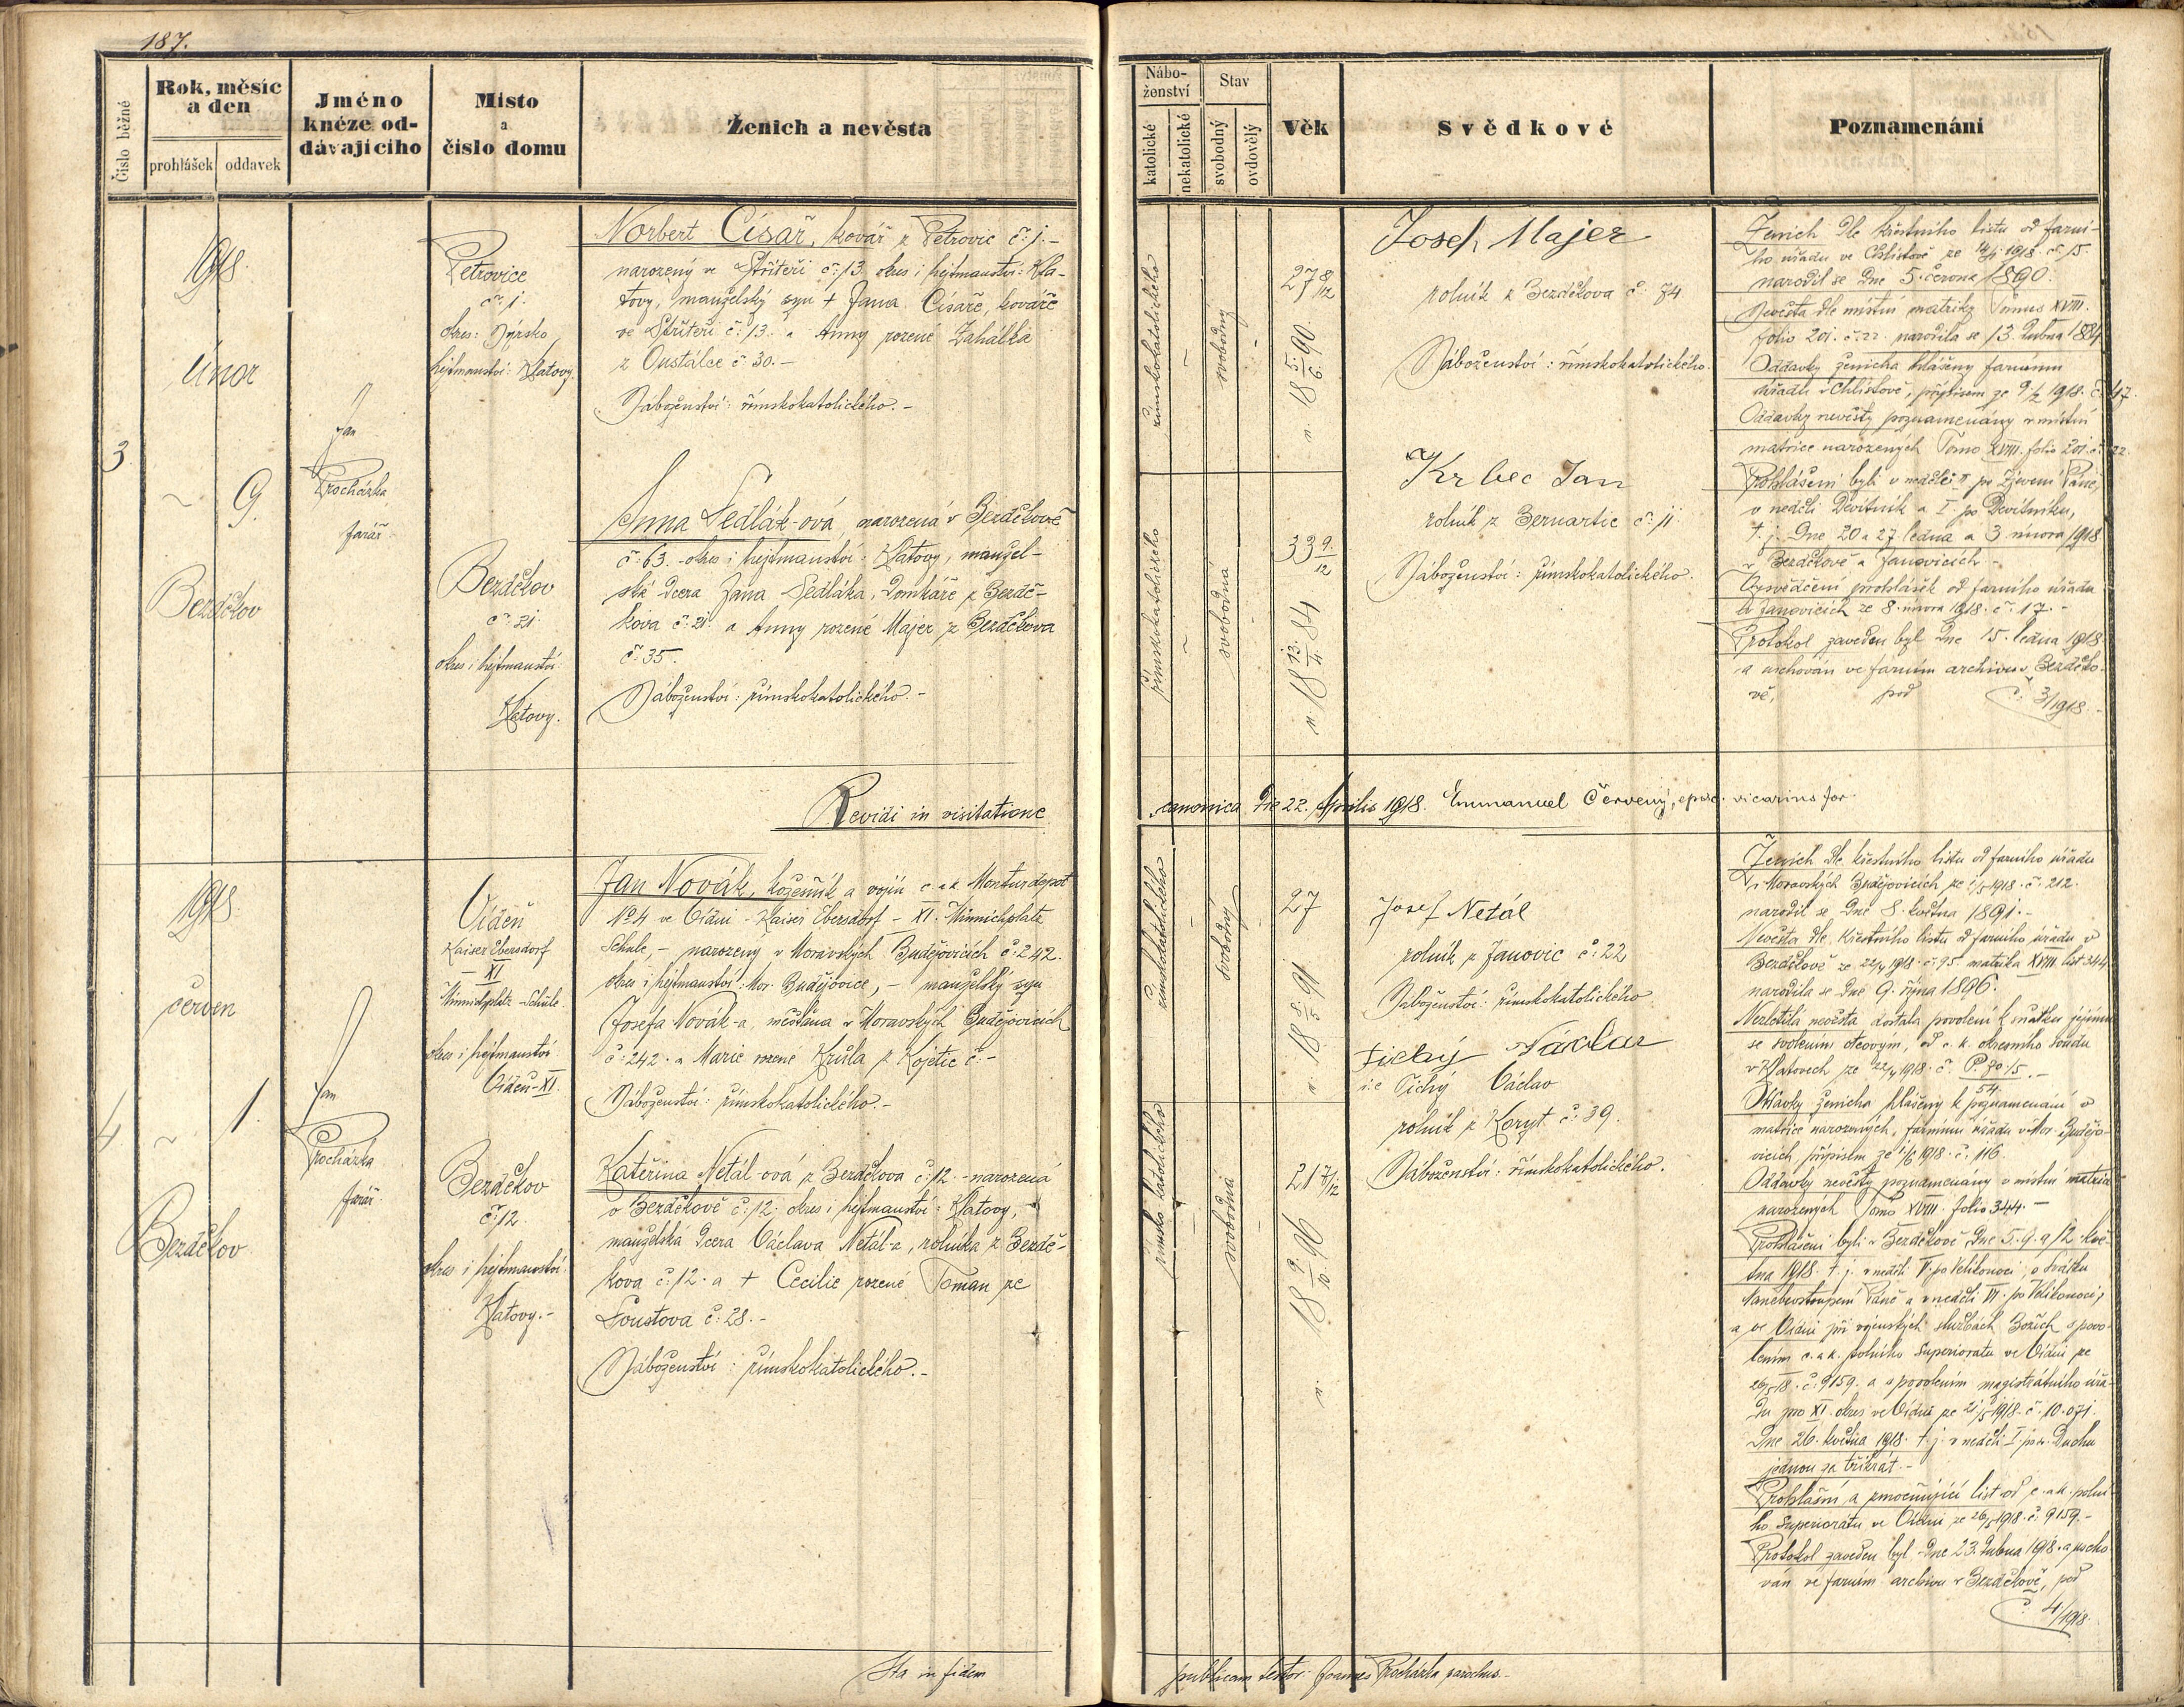 187.
Číslo běžné
Rok, měsíc a den
prohlášek
oddavek
Jméno knéze oddávajícího
Místo a číslo domu
Ženich a nevěsta
Náboženství
katolické
nekatolické
Stav
svobodný
ovdovělý
Věk
Svědkové
Poznamenání
3.
1918
únor
9.
Bezděkov
Jan
Procházka
farář
Petrovice
č: 1.
okres: Nýrsko
hejtmanství: Klatovy
Norbert Císař, kovář z Petrovic č: 1.-
narozený ve Střiteři č: 13. okres i hejtmanství: Kla-
tovy, manželský syn + Jana Císaře, kováře
ve Střiteři č: 13. a Anny rozené Zahálka
z Oustalče č: 30.-
Náboženství: římskokatolického.-
Bezděkov
č: 21.
okres i hejtmanství:
Klatovy.
Anna Sedlák-ová, narozená v Bezděkově
č: 63. okres i hejtmanství: Klatovy, manžel-
ská dcera Jana Sedláka, domkáře z Bezdě-
kova č: 21. a Anny rozené Majer z Bezděkova
č: 35.
Náboženství: římskokatolického.-
římskokatolického
svobodný
27 8/12
n. 18 5./6. 90.
římskokatolického
svobodná
33 9./12
n. 18 13./4. 84
Josef Majer
rolník z Bezděkova č: 74
Náboženství: římskokatolického.
Krbec Jan
rolník z Bernartic č: 11
Náboženství: římskokatolického.
Ženich dle křestního listu od farní-
ho úřadu ve Chlistově ze 14/1 1918. č: 15.
narodil se dne 5. června 1890.
Nevěsta dle místní matriky Tomus XVIII.
folio 201. č: 22. narodila se 13. dubna 1884
Oddavky ženicha hlášeny farnímu
úřadu v Chlistově, přípisem ze 9./2 1918. č: 47.
Oddavky nevěsty poznamenány v místní
matrice narozených Tomo XVIII. folio 201. č: 22.
Prohlášeni byli v neděli II. po Zjevení Páně,
v neděli Devítník a I. po Devítníku,
t. j. dne 20. a 27. ledna a 3. února 1918
v Bezděkově a Janovicích.-
Vysvědčení prohlášek od farního úřadu
v Janovicích ze 8. února 1918. č: 17.-
Protokol zaveden byl dne 15. ledna 1918
a uschován ve farním archivu v Bezděko-
vě, pod č: 3/1918.
Revidi in visitatione
canonica die 22. Aprilis 1918. Emmanuel Červený, episc. vicarius for.
4.
1918
červen
1.
Bezděkov
Jan
Procházka
farář.
Vídeň
Kaiser Ebersdorf
- XI
Münnichplatz-Schule.
okres i hejtmanství
Vídeň-XI.
Jan Novák, kožešník a vojín c. a k. Monturdepot
No 4 ve Vídni - Kaiser Ebersdorf - XI. Münnichplatz
Schule, - narozený v Moravských Budějovicích č: 242.
okres i hejtmanství: Mor. Budějovice, - manželský syn
Josefa Novák-a, měšťana v Moravských Budějovicích
č: 242. a Marie rozené Krůla z Kojetic č:-
Náboženství: římskokatolického.-
Bezděkov
č: 12.
okres i hejtmanství:
Klatovy.-
Kateřina Netál-ová z Bezděkova č: 12.-narozená
v Bezděkově č: 12. okres i hejtmanství: Klatovy,
manželská dcera Václava Netál-a, rolníka z Bezdě-
kova č: 12. a + Cecilie rozené Toman ze
Soustova č: 28.-
Náboženství: římskokatolického.-
římskokatolického
svobodný
27
n. 18 8./5. 91
římsko katolického
svobodná
21 7/12
n. 18 9./10. 96
Josef Netál
rolník z Janovic č: 22
Náboženství: římskokatolického
Tichý Václav
i.e Tichý Václav
rolník z Koryt č: 39.
Náboženství: římskokatolického.
Ženich dle křestního listu od farního úřadu
v Moravských Budějovicích ze 1918. č: 212.
narodil se dne 8. května 1891.-
Nevěsta dle křestního listu od farního úřadu v
Bezděkově ze 22/4 1918. č: 95. matrika XVIII. list 344
narodila se dne 9. října 1896.
Nezletilá nevěsta dostala povolení k sňatku jejímu
se svolením otcovým, od c. k. okresního soudu
v Klatovech ze 22/4 1918. č: P. 90.15/54.-
Oddavky ženicha hlášeny k poznamenání v
matrice narozených, farnímu úřadu v Mor. Budějo-
vicích, přípisem ze 1/6 1918. č: 116.
Oddavky nevěsty poznamenány v místní matrice
narozených Tomo XVIII. folio 344.-
Prohlášeni byli v Bezděkově dne 5. 9. a 12. kvě-
tna 1918. t. j. v neděli V. po Velikonoci, o svátku
Nanebevstoupení Páně a v neděli VI. po Velikonoci,
a ve Vídni při vojenských službách Božích s povo-
lením c. a k. polního Superioratu ve Vídni ze
26/5 18. č: 9159. a s povolením magistrátního úřa-
du pro XI. okres ve Vídni ze 21/5 1918. č: 10.071.
Dne 26. května 1918. t. j. v neděli I. po sv. Duchu
jednou za třikrát.-
Prohlašní a zmocňující list od c. a k. polní-
ho Superioratu ve Vídni ze 26/5 1918. č: 9159.-
Protokol zaveden byl dne 23. dubna 1918. a uscho-
ván ve farním archivu v Bezděkově, pod
č: 4/1918.
Ita in fidem
publicam testor: Joannes Procházka parochus.-